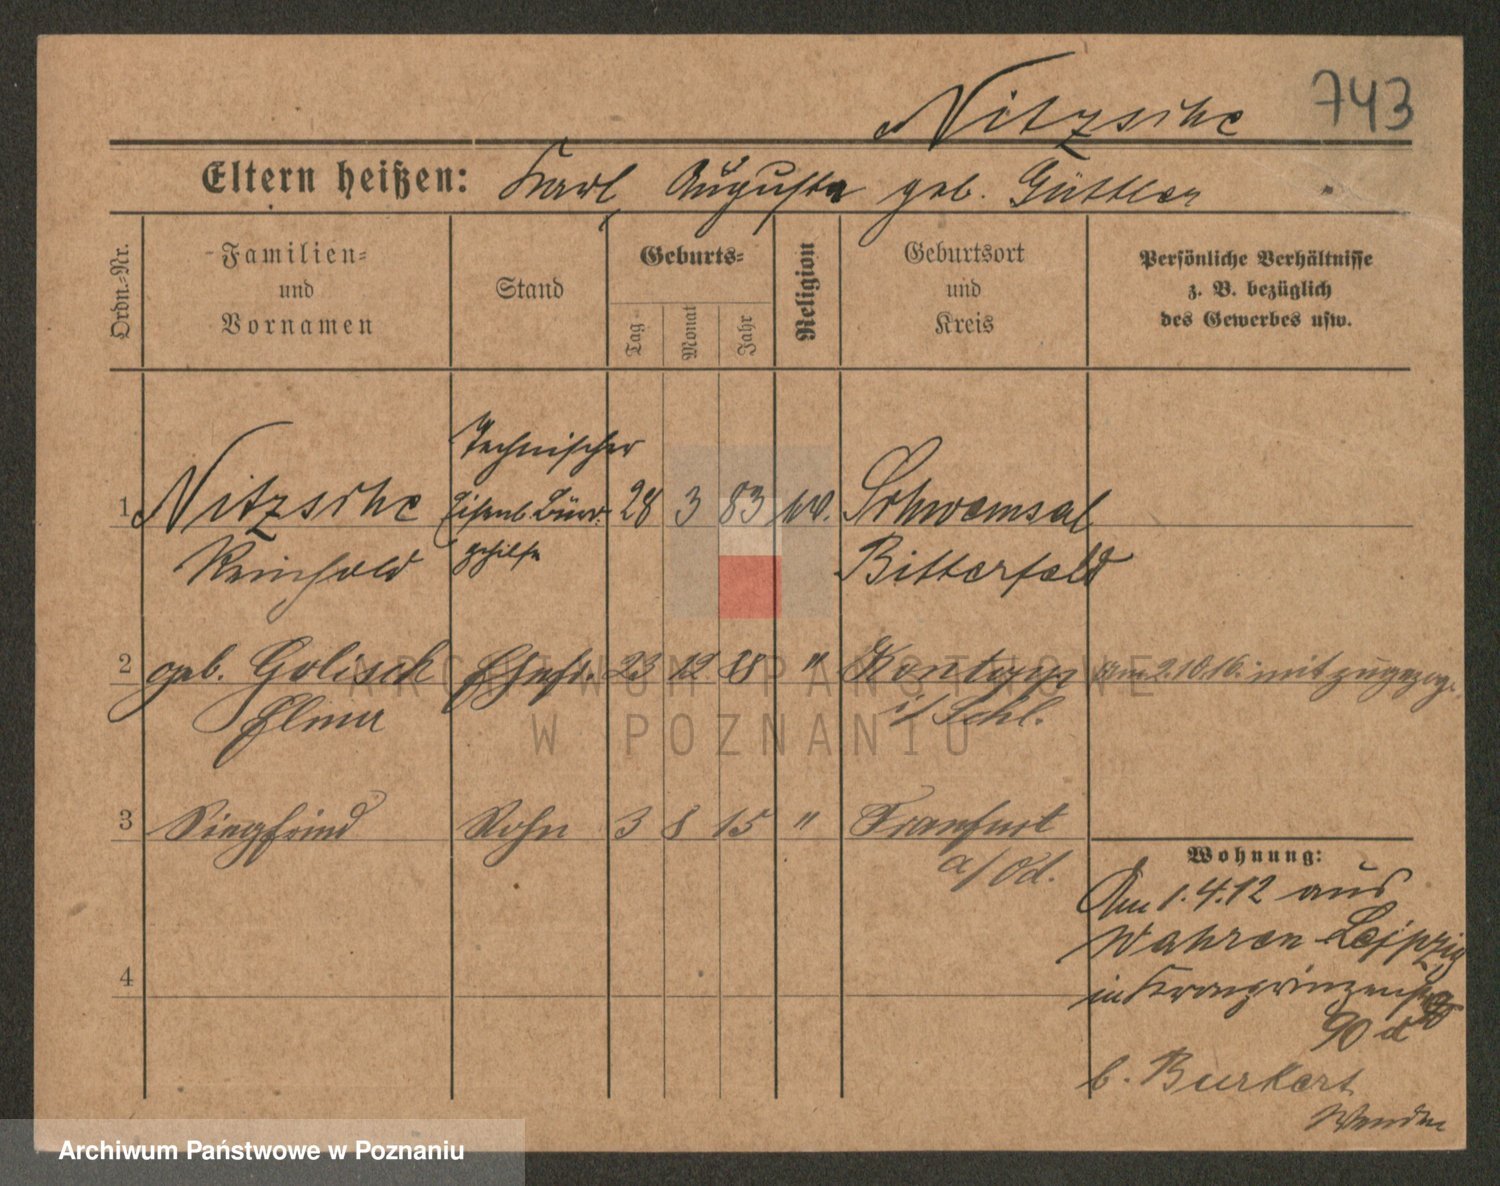 Nitzsche 743
Eltern heißen: Karl, Auguste geb. Güttler
Ordn.-Nr.
Familien-
und
Vornamen
Stand
Geburts-
Tag
Monat
Jahr
Religion
Geburtsort
und
Kreis
Persönliche Verhältnisse
z. B. bezüglich
des Gewerbes usw.
Technischer
1 Nitzsche Eisenb. Büro- 28 3 83 Schwemsal
Reinhold gehilfe Bitterfeld
2 geb. Golisch Ehefr. 23 12 88 " Kontopp am 2.10.16. mit zugezog.
i/Schl.
3 Siegfried Sohn 3 8 15 " Frankfurt
a/Od.
Wohnung:
Am 1.4.12 aus
Wahren-Leipzig
in Kronprinzenstr.
90
b. Burkert
4
Wenden
ARCHIWUM PAŃSTWOWE
W POZNANIU
Archiwum Państwowe w Poznaniu